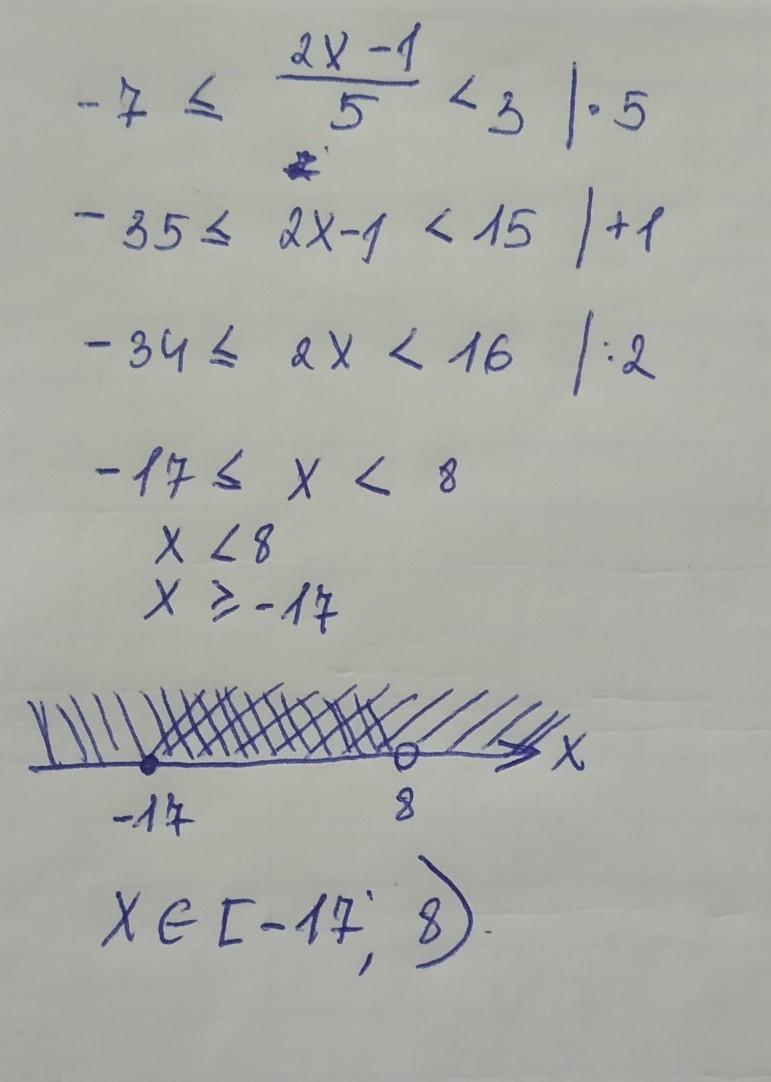 -7 ≤ (2x-1)/5 < 3 | · 5
-35 ≤ 2x-1 < 15 | +1
-34 ≤ 2x < 16 | :2
-17 ≤ x < 8
x < 8
x ≥ -17
-17 8 x
x ∈ [-17; 8).